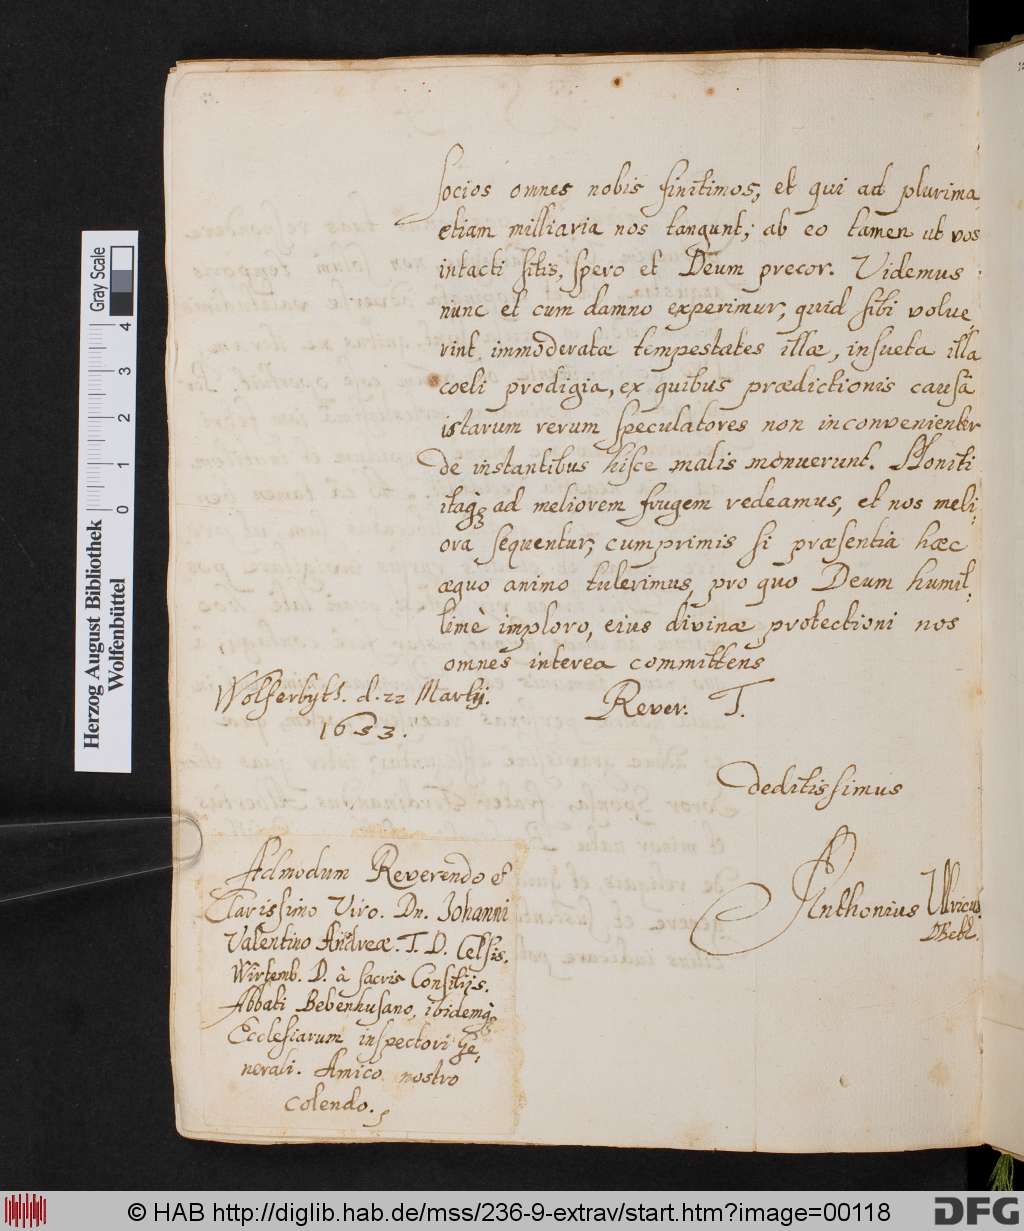 socios omnes nobis finitimos, et qui ad plurima
etiam milliaria nos tangunt; ab eo tamen ut vos
intacti sitis, spero et Deum precor. Videmus
nunc et cum damno experimur, quid sibi volue
rint immoderatæ tempestates illæ, insueta illa
coeli prodigia, ex quibus prædictionis causâ
istarum rerum speculatores non inconvenienter
de instantibus hisce malis monuerunt. Moniti
itaq; ad meliorem frugem redeamus, et nos meli:
ora sequentur, cumprimis si præsentia hæc
æquo animo tulerimus, pro quo Deum humil:
limè imploro, eius divinæ protectioni nos
omnes interea committens
Wolferbyt. d. 22 Martij.
1653.
Rever. T.
deditissimus
Anthonius Ulricus
Admodum Reverendo et
Clarissimo Viro. Dn. Johanni
Valentino Andreæ. T. D. Celsis.
Würtemb. D. à sacris Consilijs.
Abbati Bebenhusano, ibidemq;
Ecclesiarum inspectori Ge,
nerali. Amico nostro
colendo.
Herzog August Bibliothek
Wolfenbüttel
Gray Scale
0 1 2 3 4
© HAB http://diglib.hab.de/mss/236-9-extrav/start.htm?image=00118
DFG